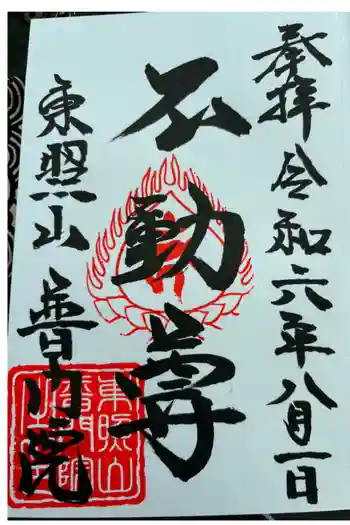 奉拝 令和六年八月一日
不動尊
東照山 普門院